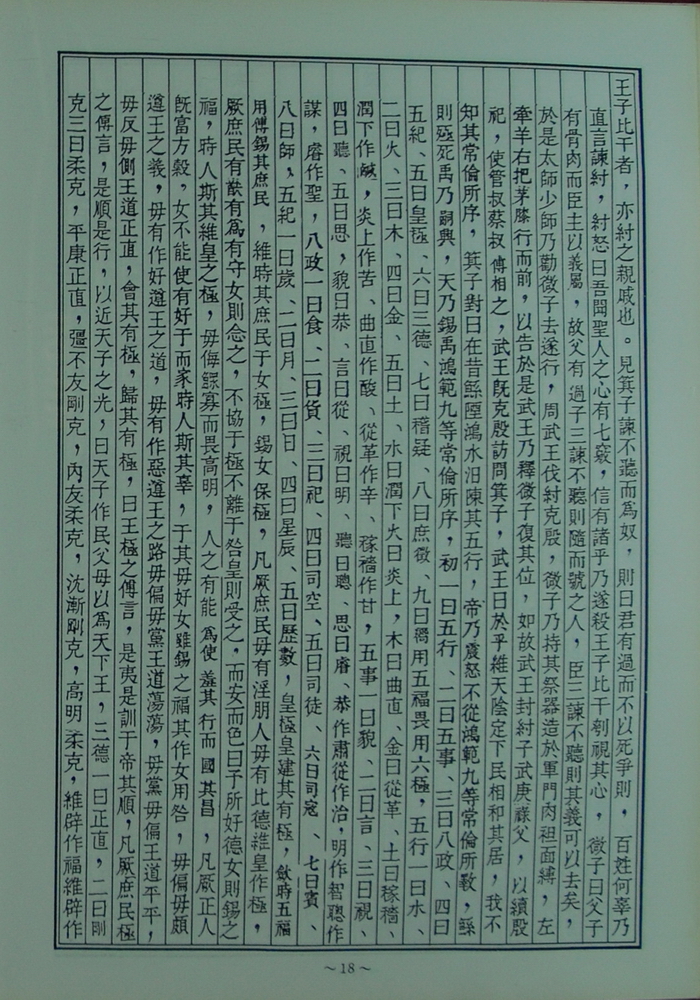 王子比干者，亦紂之親戚也。見箕子諫不聽而為奴，則曰君有過而不以死爭則，百姓何辜乃
直言諫紂，紂怒曰吾聞聖人之心有七竅，信有諸乎乃遂殺王子比干刳視其心，微子曰父子
有骨肉而臣主以義屬，故父有過子三諫不聽則隨而號之人，臣三諫不聽則其義可以去矣，
於是太師少師乃勸微子去遂行，周武王伐紂克殷，微子乃持其祭器造於軍門肉袒面縛，左
牽羊右把茅膝行而前，以告於是武王乃釋微子復其位，如故武王封紂子武庚祿父，以續殷
祀，使管叔蔡叔傅相之，武王既克殷訪問箕子，武王曰於乎維天陰定下民相和其居，我不
知其常倫所序，箕子對曰在昔鯀陻鴻水汨陳其五行，帝乃震怒不從鴻範九等常倫所斁，鯀
則殛死禹乃嗣興，天乃錫禹鴻範九等常倫所序，初一曰五行、二曰五事、三曰八政、四曰
五紀、五曰皇極、六曰三德、七曰稽疑、八曰庶徵、九曰嚮用五福畏用六極，五行一曰水、
二曰火、三曰木、四曰金、五曰土、水曰潤下火曰炎上，木曰曲直、金曰從革、土曰稼穡、
潤下作鹹，炎上作苦、曲直作酸、從革作辛、稼穡作甘，五事一曰貌、二曰言、三曰視、
四曰聽、五曰思，貌曰恭、言曰從、視曰明、聽曰聰、思曰睿、恭作肅從作治，明作智聰作
謀，睿作聖，八政一曰食、二曰貨、三曰祀、四曰司空、五曰司徒、六曰司寇、七曰賓、
八曰師，五紀一曰歲、二曰月、三曰日、四曰星辰、五曰歷數，皇極皇建其有極，斂時五福
用傅錫其庶民，維時其庶民于女極，錫女保極，凡厥庶民毋有淫朋人毋有比德維皇作極，
厥庶民有猷有為有守女則念之，不協于極不離于咎皇則受之，而安而色曰予所好德女則錫之
福，時人斯其維皇之極，毋侮鰥寡而畏高明，人之有能為使羞其行而國其昌，凡厥正人
既富方穀，女不能使有好于而家時人斯其辜，于其毋好女雖錫之福其作女用咎，毋偏毋頗
遵王之義，毋有作好遵王之道，毋有作惡遵王之路毋偏毋黨王道蕩蕩，毋黨毋偏王道平平，
毋反毋側王道正直，會其有極，歸其有極，曰王極之傅言，是夷是訓于帝其順，凡厥庶民極
之傅言，是順是行，以近天子之光，曰天子作民父母以為天下王，三德一曰正直，二曰剛
克三曰柔克，平康正直，彊不友剛克，內友柔克，沈漸剛克，高明柔克，維辟作福維辟作
～18～